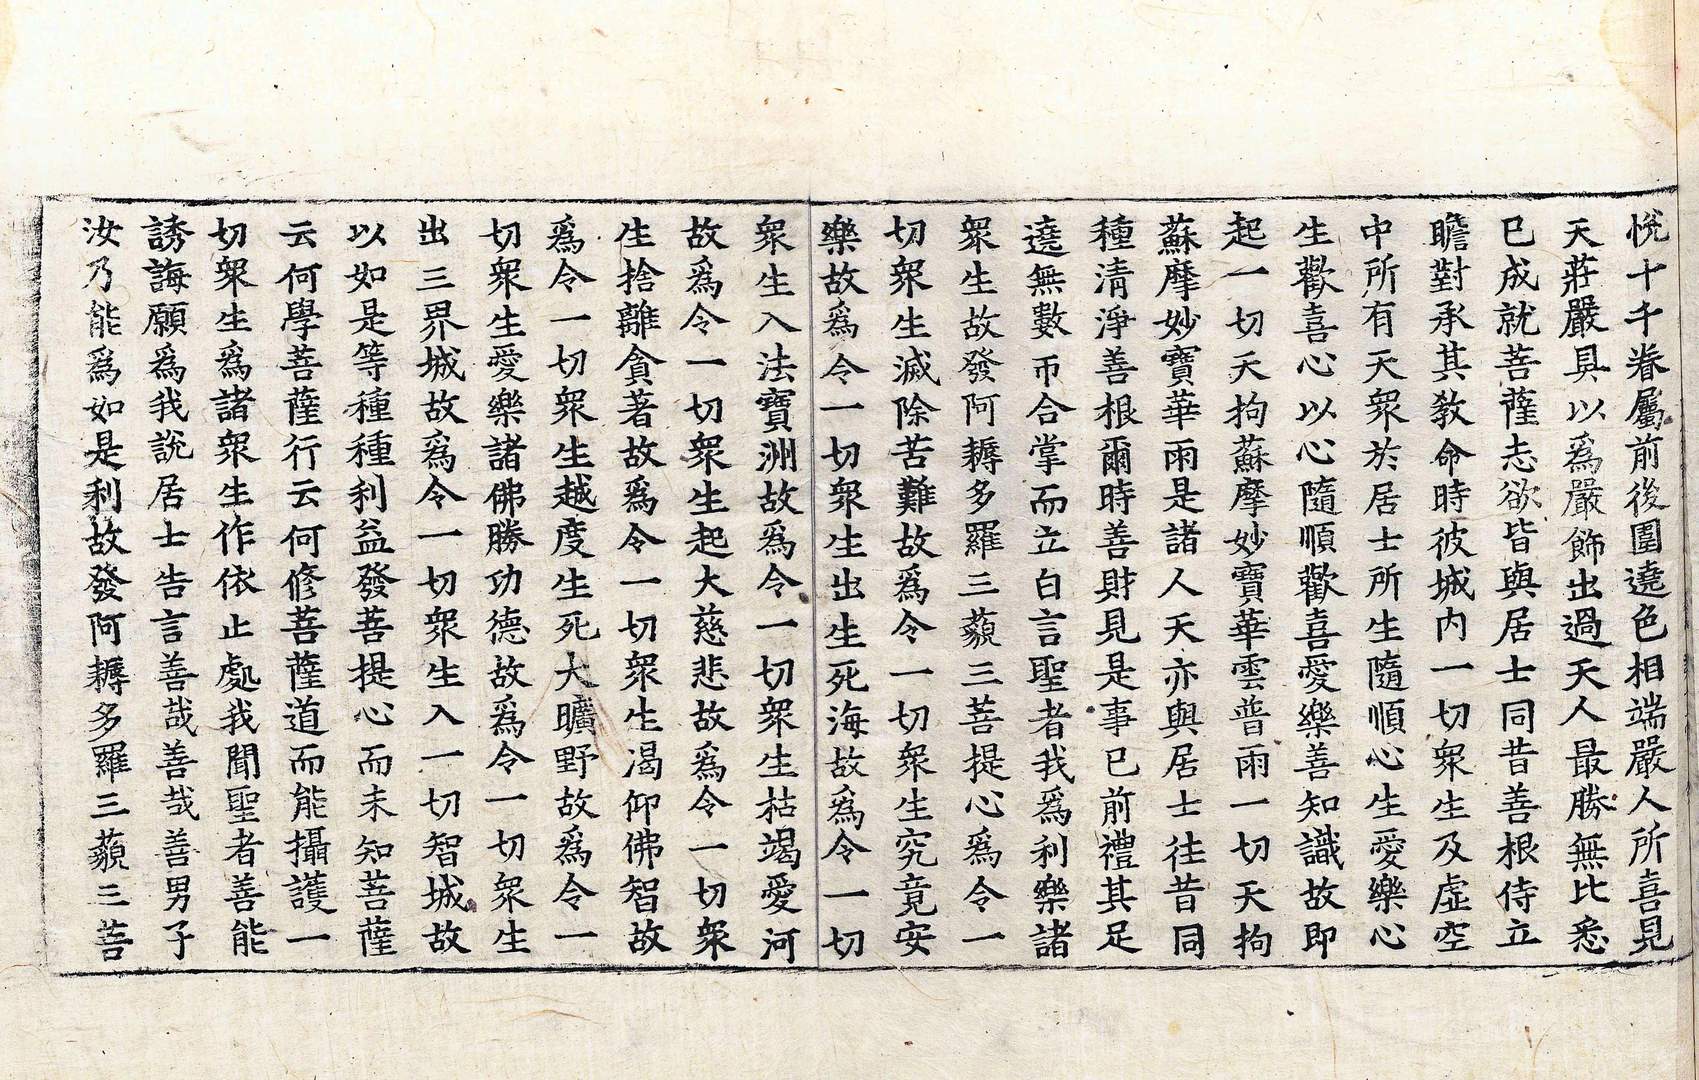 悅十千眷屬前後圍遶色相端嚴人所喜見
天莊嚴具以爲嚴飾出過天人最勝無比悉
已成就菩薩志欲皆與居士同昔善根侍立
瞻對承其教命時彼城內一切衆生及虛空
中所有天衆於居士所生隨順心生愛樂心
生歡喜心以心隨順歡喜愛樂善知識故即
起一切天拘蘇摩妙寶華雲普雨一切天拘
蘇摩妙寶華雨是諸人天亦與居士往昔同
種清淨善根爾時善財見是事已前禮其足
遶無數帀合掌而立白言聖者我爲利樂諸
衆生故發阿耨多羅三藐三菩提心爲令一
切衆生滅除苦難故爲令一切衆生究竟安
樂故爲令一切衆生出生死海故爲令一切
衆生入法寶洲故爲令一切衆生枯竭愛河
故爲令一切衆生起大慈悲故爲令一切衆
生捨離貪著故爲令一切衆生渴仰佛智故
爲令一切衆生越度生死大曠野故爲令一
切衆生愛樂諸佛勝功德故爲令一切衆生
出三界城故爲令一切衆生入一切智城故
以如是等種種利益發菩提心而未知菩薩
云何學菩薩行云何修菩薩道而能攝護一
切衆生爲諸衆生作依止處我聞聖者善能
誘誨願爲我說居士告言善哉善哉善男子
汝乃能爲如是利故發阿耨多羅三藐三菩